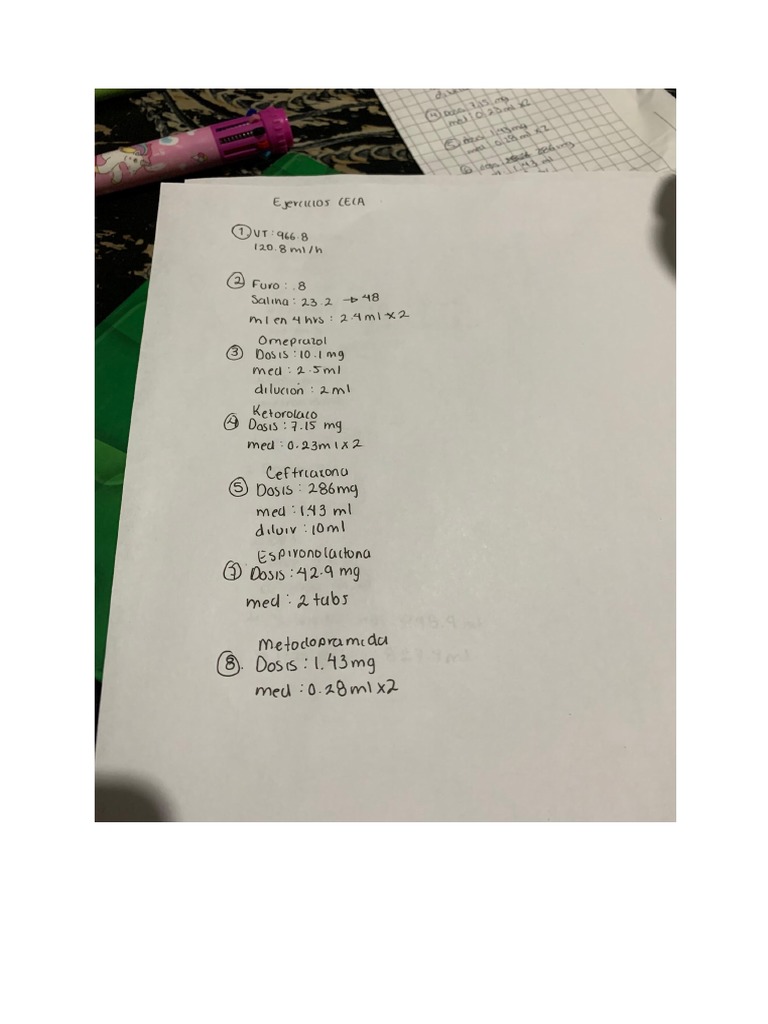 ④ Dosis: 7.15 mg
med: 0.23ml x2
1.43mg
med: 0.28 ml x2
286mg
1.43 ml
Ejercicios CECA
① VT: 966.8
120.8 ml/h
② Furo: .8
Salina: 23.2 → 48
ml en 4 hrs: 2.4ml x 2
Omeprazol
③ Dosis: 10.1 mg
med: 2.5ml
dilución: 2ml
Ketorolaco
④ Dosis: 7.15 mg
med: 0.23ml x2
Ceftriaxona
⑤ Dosis: 286mg
med: 1.43 ml
diluir: 10ml
Espironolactona
⑦ Dosis: 42.9 mg
med: 2 tabs
Metoclopramida
⑧. Dosis: 1.43mg
med: 0.28ml x2